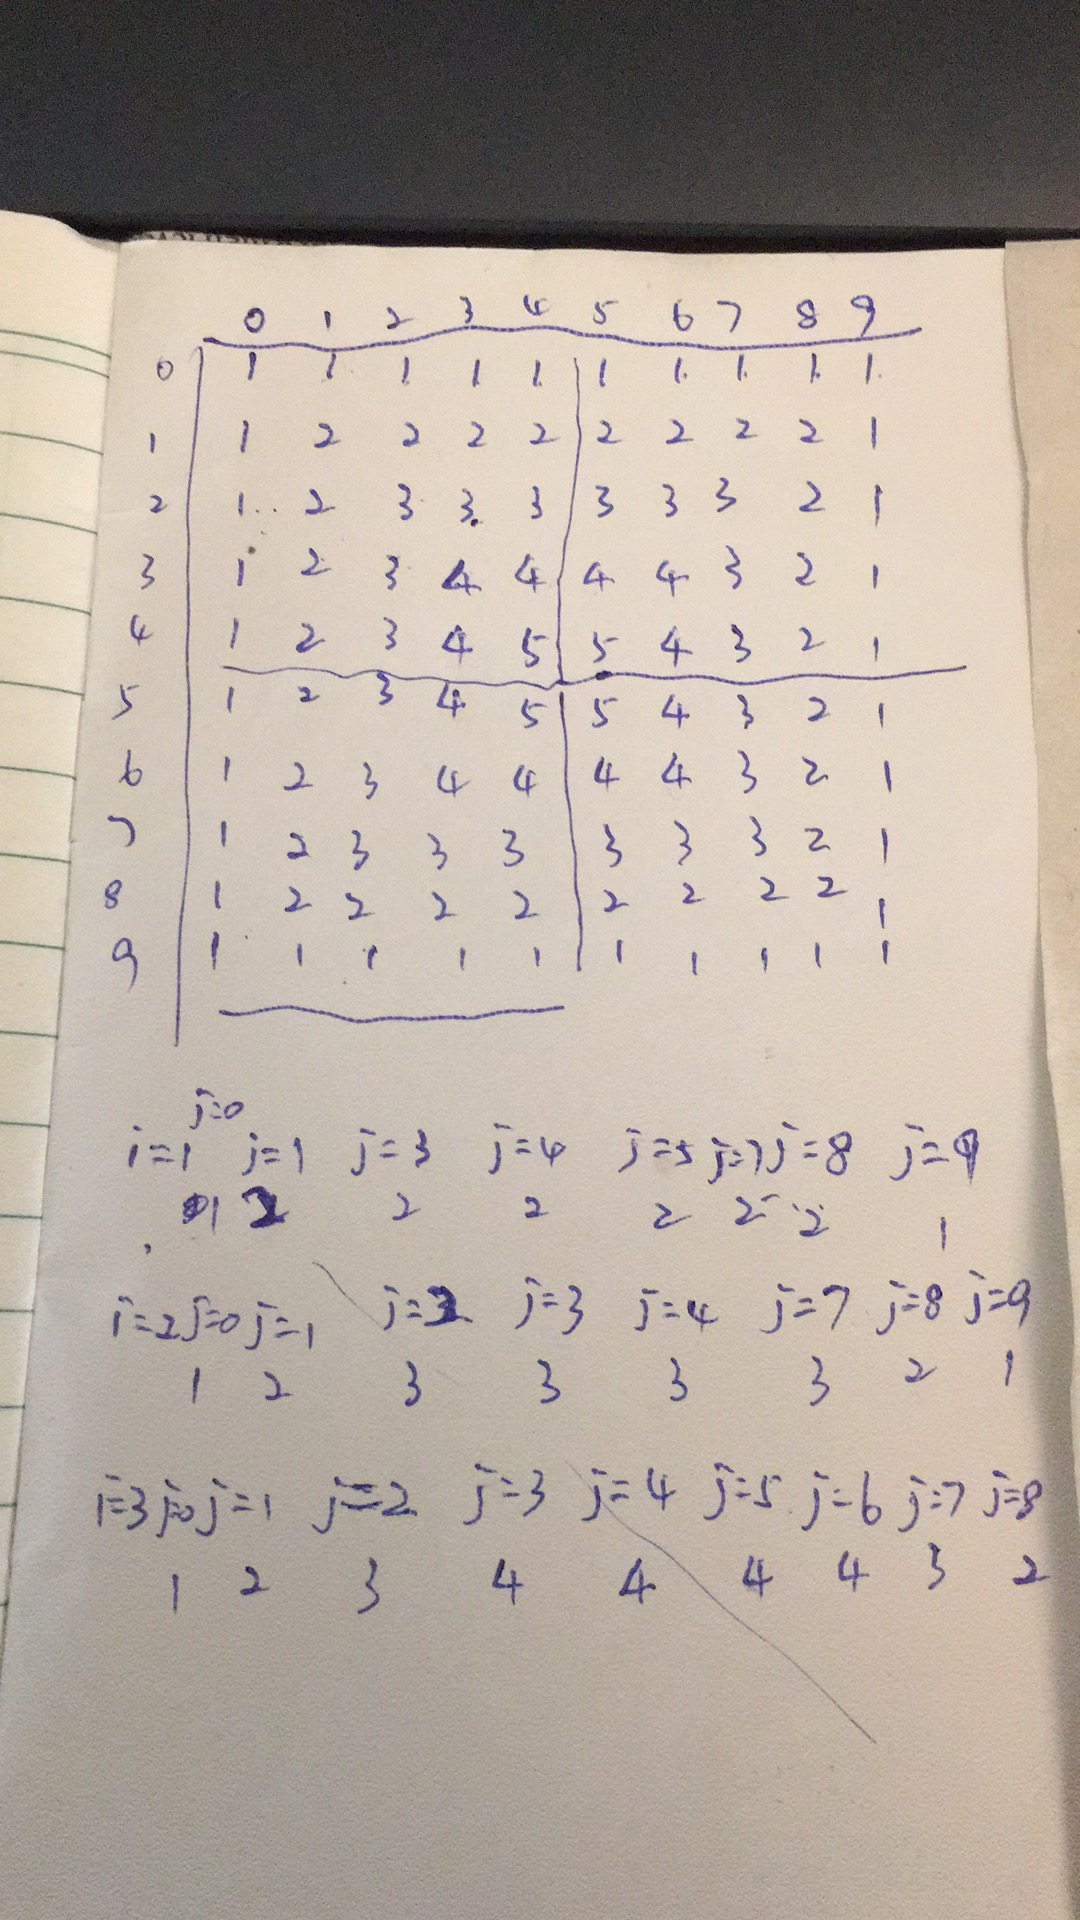 0 1 2 3 4 5 6 7 8 9
0 1 1 1 1 1 1 1 1 1 1
1 1 2 2 2 2 2 2 2 2 1
2 1 2 3 3 3 3 3 3 2 1
3 1 2 3 4 4 4 4 3 2 1
4 1 2 3 4 5 5 4 3 2 1
5 1 2 3 4 5 5 4 3 2 1
6 1 2 3 4 4 4 4 3 2 1
7 1 2 3 3 3 3 3 3 2 1
8 1 2 2 2 2 2 2 2 2 1
9 1 1 1 1 1 1 1 1 1 1
i=1 j=0 j=1 j=3 j=4 j=5 j=7 j=8 j=9
1 2 2 2 2 2 2 1
i=2 j=0 j=1 j=2 j=3 j=4 j=7 j=8 j=9
1 2 3 3 3 3 2 1
i=3 j=0 j=1 j=2 j=3 j=4 j=5 j=6 j=7 j=8
1 2 3 4 4 4 4 3 2